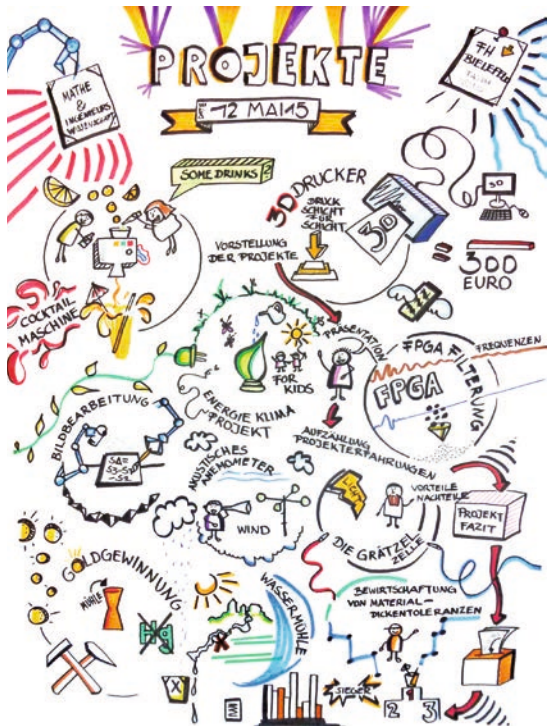 PROJEKTE
12 MAI 15
MATHE
&
INGENIEURS
WISSENSCHAFT
FH
BIELEFELD
SOME DRINKS
COCKTAIL
MASCHINE
3D DRUCKER
DRUCK
SCHICHT
FÜR
SCHICHT
3D
3D
= 300
EURO
VORSTELLUNG
DER PROJEKTE
FOR
KIDS
ENERGIE KLIMA
PROJEKT
PRÄSENTATION
AUFZÄHLUNG
PROJEKTERFAHRUNGEN
FPGA FILTERUNG
FREQUENZEN
FPGA
BILDBEARBEITUNG
AKUSTISCHES
ANEMOMETER
WIND
LICHT
VORTEILE
NACHTEILE
DIE GRÄTZEL
ZELLE
PROJEKT
FAZIT
GOLDGEWINNUNG
MÜHLE
Hg
WASSERMÜHLE
BEWIRTSCHAFTUNG
VON MATERIAL-
DICKENTOLERANZEN
SIEGER
2 1 3